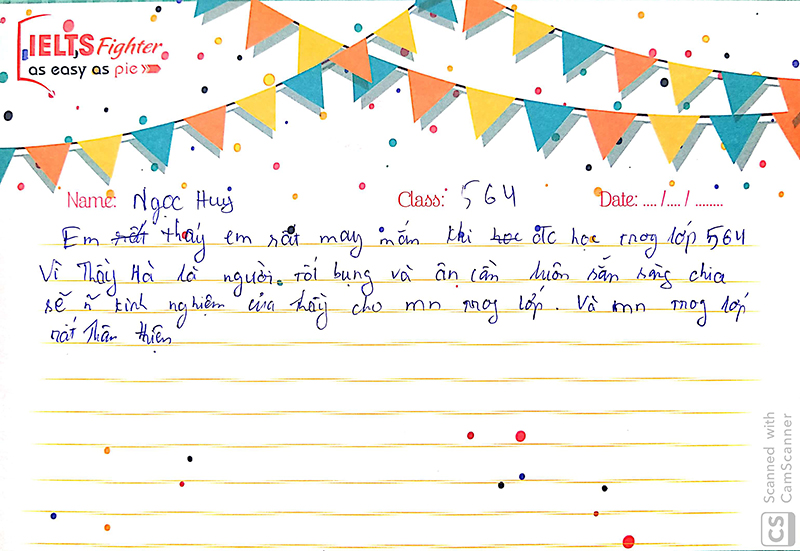 IELTS Fighter
as easy as pie
Name: Ngọc Huy Class: 564 Date: ..../..../........
Em rất thấy em rất may mắn khi học đc học trog lớp 564
Vì Thầy Hà là người tốt bụng và ân cần luôn sẵn sàng chia
sẽ ~n kinh nghiệm của thầy cho mn trog lớp. Và mn trog lớp
rất thân thiện
Scanned with
CamScanner
CS